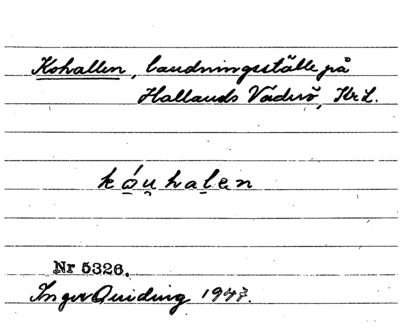 Kohallen, landningsställe på
Hallands Väderö, Kr.L.
kóu̯halen
Nr 5326.
Inger Quiding 1947.